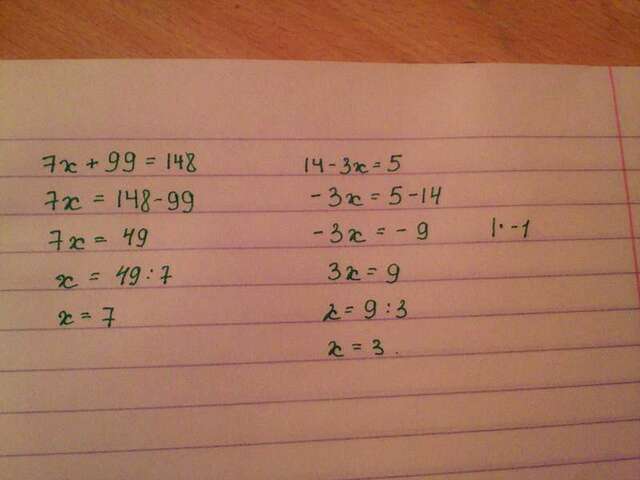 7x + 99 = 148
7x = 148 - 99
7x = 49
x = 49 : 7
x = 7
14 - 3x = 5
-3x = 5 - 14
-3x = -9 |· -1
3x = 9
x = 9 : 3
x = 3.